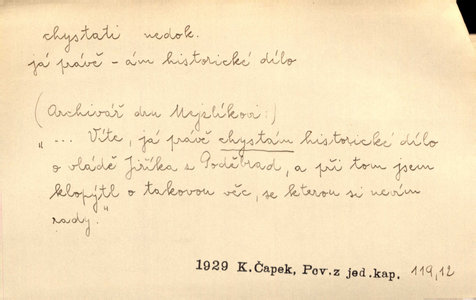 chystati nedok.
já právě - ám historické dílo
(Archivář dru Mejzlíkovi:)
"... Víte, já právě chystám historické dílo
o vládě Jiříka z Poděbrad, a při tom jsem
klopýtl o takovou věc, se kterou si nevím
rady."
1929 K.Čapek, Pov.z jed.kap. 119,12